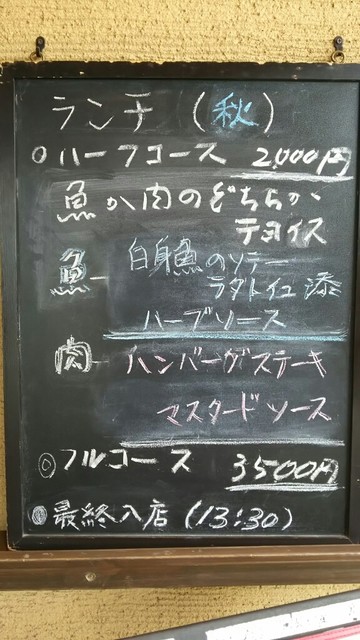 ランチ (秋)
○ ハーフコース 2,000円
魚か肉のどちらか
チョイス
魚- 白身魚のソテー
ラタトイユ添
ハーブソース
肉- ハンバーグステーキ
マスタードソース
◎ フルコース 3500円
◎ 最終入店 (13:30)